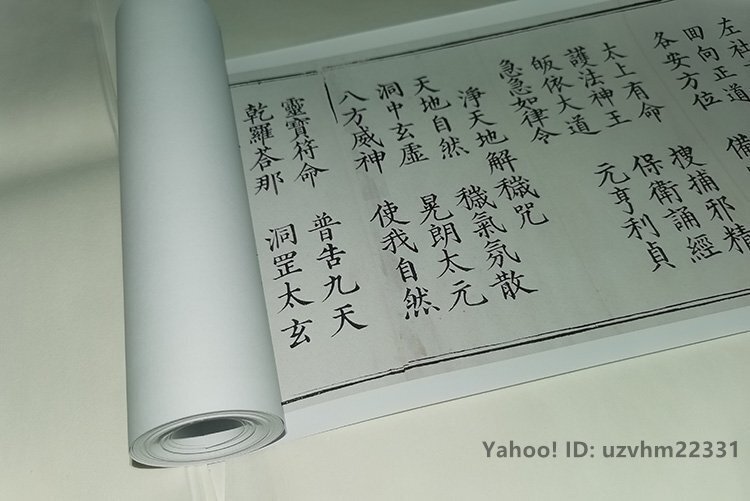 左社
囬向正道
各安方位 備
太上有命 搜捕邪精
護法神王 保衛誦經
皈依大道 元亨利貞
急急如律令
淨天地解穢咒
天地自然 穢氣氛散
洞中玄虛 晃朗太元
八方威神 使我自然
靈寶符命 普告九天
乾羅荅那 洞罡太玄
Yahoo! ID: uzvhm22331